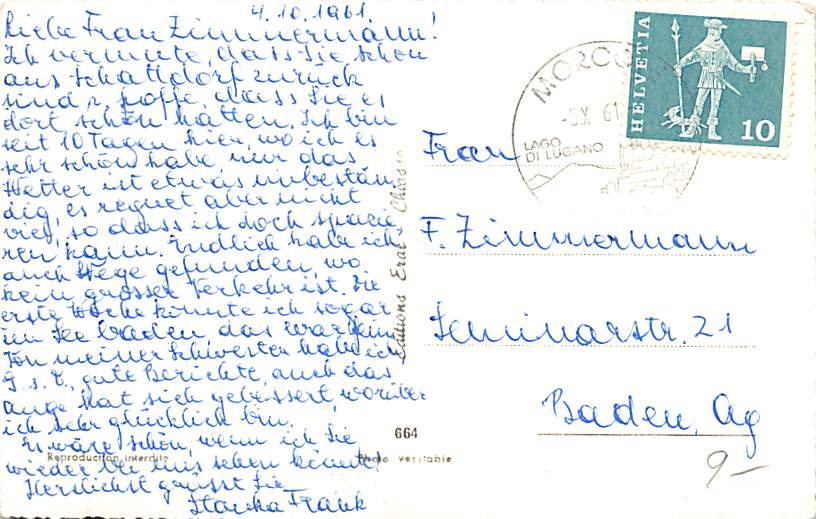 4.10.1961.
Liebe Frau Zimmermann!
Ich vermute, dass Sie schon
aus Schattdorf zurück
sind u. hoffe, dass Sie es
dort schön hatten. Ich bin
seit 10 Tagen hier, wo ich es
sehr schön habe nur das
Wetter ist etwas unbestän-
dig, es regnet aber nicht
viel, so dass ich doch spazie-
ren kann. Endlich habe ich
auch Wege gefunden, wo
kein grosser Verkehr ist. Die
erste Woche könnte ich sogar
im See baden das war fein
Von meiner Schwester habe ich
G. s. D., gute Berichte, auch das
Auge hat sich gebessert, worüber
ich sehr glücklich bin.
Es wäre schön, wenn ich Sie
wieder bei uns sehen könnte!
Herzlichst grüsst Sie
Frank
Reproduction interdite
Editions Erat Chiasso
664
Photo veritable
HELVETIA
10
MORCO
-5.X. 61
LAGO
DI LUGANO
Frau
F. Zimmermann
Seminarstr. 21
Baden, Ag
9-